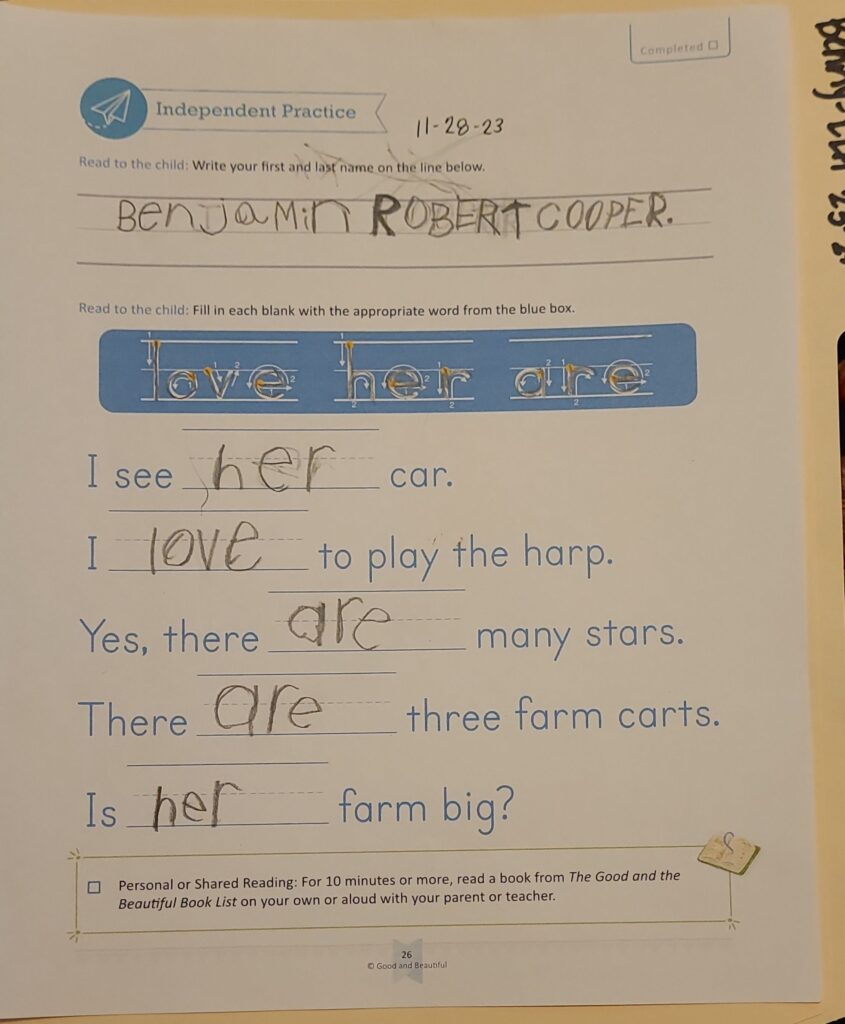 Completed
Independent Practice
11-28-23
Read to the child: Write your first and last name on the line below.
BenJaMin ROBERT COOPER.
Read to the child: Fill in each blank with the appropriate word from the blue box.
love her are
I see her car.
I love to play the harp.
Yes, there are many stars.
There are three farm carts.
Is her farm big?
Personal or Shared Reading: For 10 minutes or more, read a book from The Good and the
Beautiful Book List on your own or aloud with your parent or teacher.
26
© Good and Beautiful